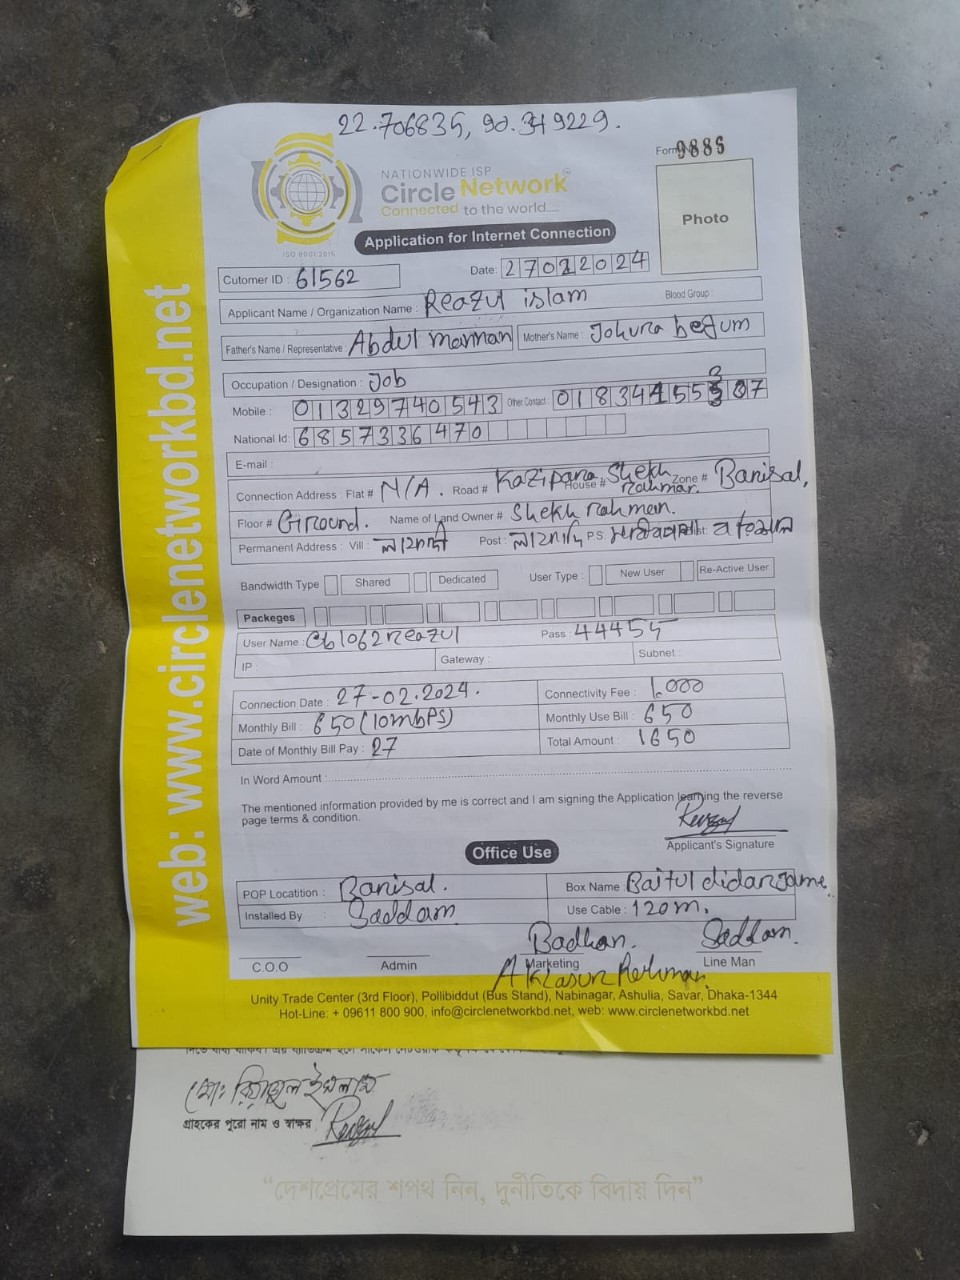 22.706835, 90.349229.
Form 9886
NATIONWIDE ISP
Circle Network
Connected to the world....
ISO 9001:2015
Photo
Application for Internet Connection
Cutomer ID : 61562
Date: 27022024
Applicant Name / Organization Name : Reazul islam
Blood Group :
Father's Name / Representative : Abdul mannan
Mother's Name : Johura begum
Occupation / Designation : Job
Mobile : 01329740543 Other Contact :
National Id: 6857336470
E-mail :
Connection Address : Flat # N/A. Road # Kazipara House # Shekh rahman. Zone # Barisal,
Floor # Ground. Name of Land Owner # Shekh rahman.
Permanent Address : Vill : Post : P.S:
Bandwidth Type Shared Dedicated User Type : New User Re-Active User
Packeges
User Name : Cb1062reazul Pass : 44455
IP : Gateway : Subnet :
Connection Date : 27-02.2024. Connectivity Fee : 1.000
Monthly Bill : 650 (10mbPS) Monthly Use Bill : 650
Date of Monthly Bill Pay : 27 Total Amount : 1650
In Word Amount :
The mentioned information provided by me is correct and I am signing the Application learning the reverse
page terms & condition.
Reazul
Applicant's Signature
Office Use
POP Locatition : Barisal. Box Name : Baitul didar Jame
Installed By Saddam Use Cable : 120m.
Badhon. Saddam.
C.O.O Admin Marketing Line Man
Rehman.
Unity Trade Center (3rd Floor), Pollibiddut (Bus Stand), Nabinagar, Ashulia, Savar, Dhaka-1344
Hot-Line: + 09611 800 900, info@circlenetworkbd.net, web: www.circlenetworkbd.net
web: www.circlenetworkbd.net
মোঃ রিয়াজুল ইসলাম
গ্রাহকের পুরো নাম ও স্বাক্ষর Reazul
“দেশপ্রেমের শপথ নিন, দুর্নীতিকে বিদায় দিন”